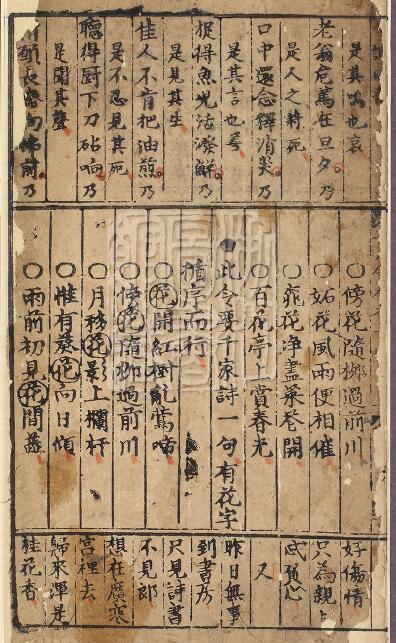 是其鳴也哀
老翁危篤在旦夕乃
是人之將死
口中還念釋消災乃
是其言也善
捉得魚兒活潑鮮乃
是見其生
佳人不肯把油煎乃
是不忍見其死
聽得厨下刀砧响乃
是聞其聲
頭長向佛前乃
○傍花隨柳過前川
○妬花風雨便相催
○桃花净盡菜花開
○百花亭上賞春光
此令要千家詩一句有花字
循序而行
○花開紅樹亂鶯啼
○傍花隨柳過前川
○月移花影上欄杆
○惟有葵花向日傾
○雨前初見花間蕊
好傷情
只為親
成負心
又
昨日無事
到書房
只見詩書
不見郎
想在廣寒
宮裡去
歸來渾是
桂花香